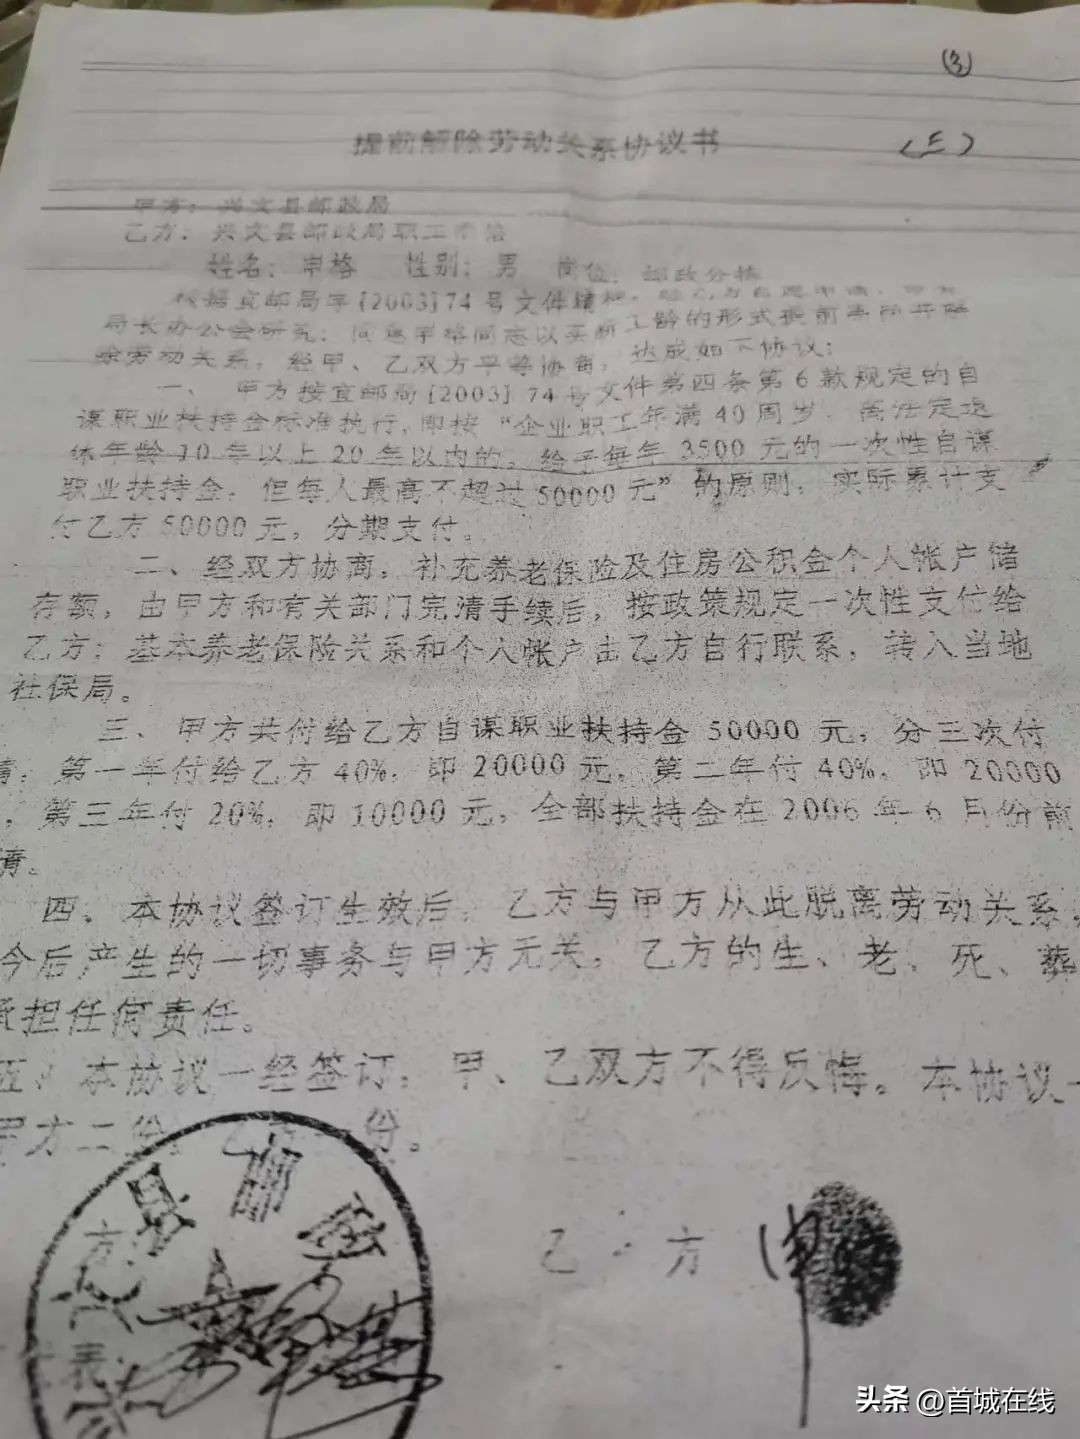 ③
提前解除劳动关系协议书
(三)
甲方：兴文县邮政局
乙方：兴文县邮政局职工申格
姓名：申格 性别：男 岗位：邮政分拣
根据宜邮局字[2003]74号文件精神，经乙方自愿申请，
局长办公会研究，同意申格同志以买断工龄的形式提前
除劳动关系，经甲、乙双方平等协商，达成如下协议：
一、甲方按宜邮局[2003]74号文件第四条第6款规定的自
谋职业扶持金标准执行，即按“企业职工年满40周岁，离法定退
休年龄10年以上20年以内的，给予每年3500元的一次性自谋
职业扶持金，但每人最高不超过50000元”的原则，实际累计支
付乙方50000元，分期支付。
二、经双方协商，补充养老保险及住房公积金个人帐户储
存额，由甲方和有关部门完清手续后，按政策规定一次性支付给
乙方；基本养老保险关系和个人帐户由乙方自行联系，转入当地
社保局。
三、甲方共付给乙方自谋职业扶持金50000元，分三次付
清，第一年付给乙方40%，即20000元，第二年付40%，即20000
，第三年付20%，即10000元，全部扶持金在2006年6月份前
清。
四、本协议签订生效后，乙方与甲方从此脱离劳动关系，
今后产生的一切事务与甲方无关，乙方的生、老、死、葬
承担任何责任。
五、本协议一经签订，甲、乙双方不得反悔。本协议一
甲方二份，乙方一份。
县邮政
方
表
乙方 申
头条 @首城在线